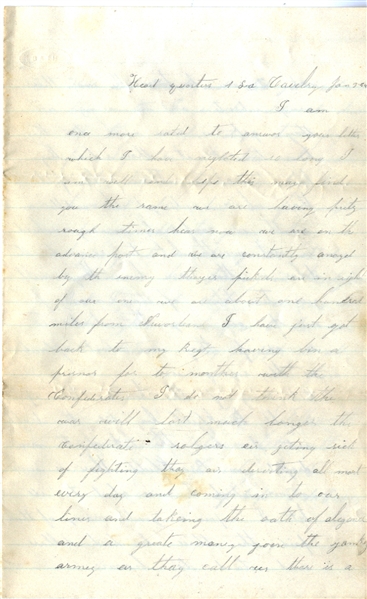 Head quarters 1 3rd Cavelry Jan 24
I am
once more abel to answer your letter
which I have neglected so long I
am well and hope this may find
you the same we are having prety
rough times hear now we are on the
advance post and we are constantly anoyed
by the enemy thayer pickets are in sight
of our one we are about one hundred
miles from I have just got
back to my Regt having ben a
prisner for to months with the
Confedrates I do not think the
war will last much longer the
Confedrate solgers air giting sick
of fighting they air deserting all most
every day and coming in to our
lines and takeing the oath of alegance
and a greate maney join the yankey
armey as they call us there is a